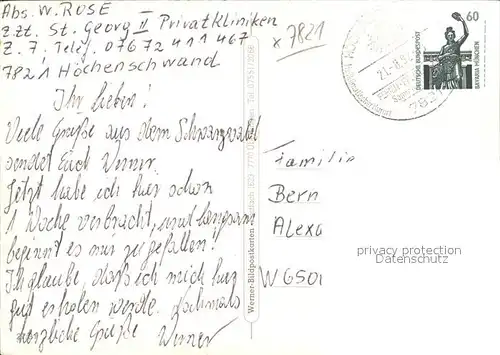 Abs. W. ROSE
z. Zt. St. Georg II Privatkliniken
Z. 7. Telef. 07672 411 467
7821 Höchenschwand
x 7821
Ihr Lieben!
Viele Grüße aus dem Schwarzwald
sendet Euch Werner.
Jetzt habe ich hier schon
1 Woche verbracht, und langsam
beginnt es mir zu gefallen!
Ich glaube, daß ich mich hier
gut erholen werde. Nochmals
herzliche Grüße Werner
Werner-Bildpostkarten
60
DEUTSCHE BUNDESPOST
BAVARIA MÜNCHEN
Familie
Bern
Alexa
W 6501
privacy protection
Datenschutz